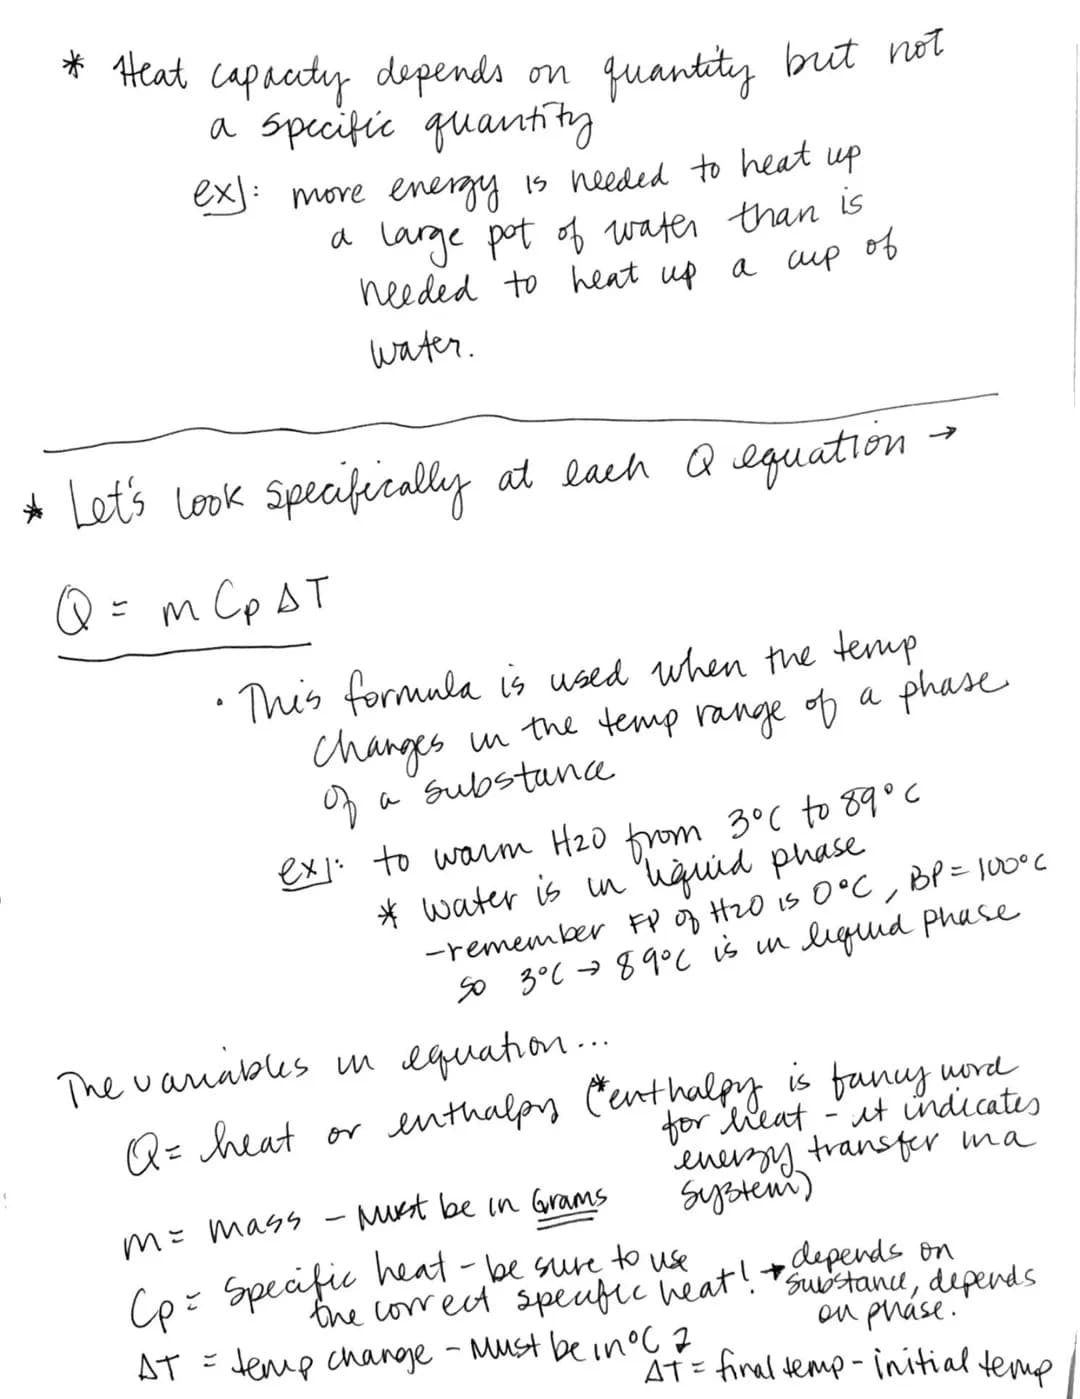 * Heat capacity depends on quantity but not
a specific quantity
ex): more energy is needed to heat up
a large pot of water than is
needed to heat up a cup of
water.
* Let's look specifically at each Q equation →
Q = m Cp ΔT
• This formula is used when the temp
changes in the temp range of a phase
of a substance
ex): to warm H2O from 3°C to 89°C
* water is in liquid phase
- remember FP of H2O is 0°C, BP = 100°C
so 3°C → 89°C is in liquid phase
The variables in equation...
Q = heat or enthalpy (*enthalpy is fancy word
for heat - it indicates
energy transfer in a
system)
m = mass - Must be in Grams
Cp = Specific heat - be sure to use
the correct specific heat! → depends on
substance, depends
on phase.
ΔT = temp change - Must be in °C
ΔT = final temp - initial temp